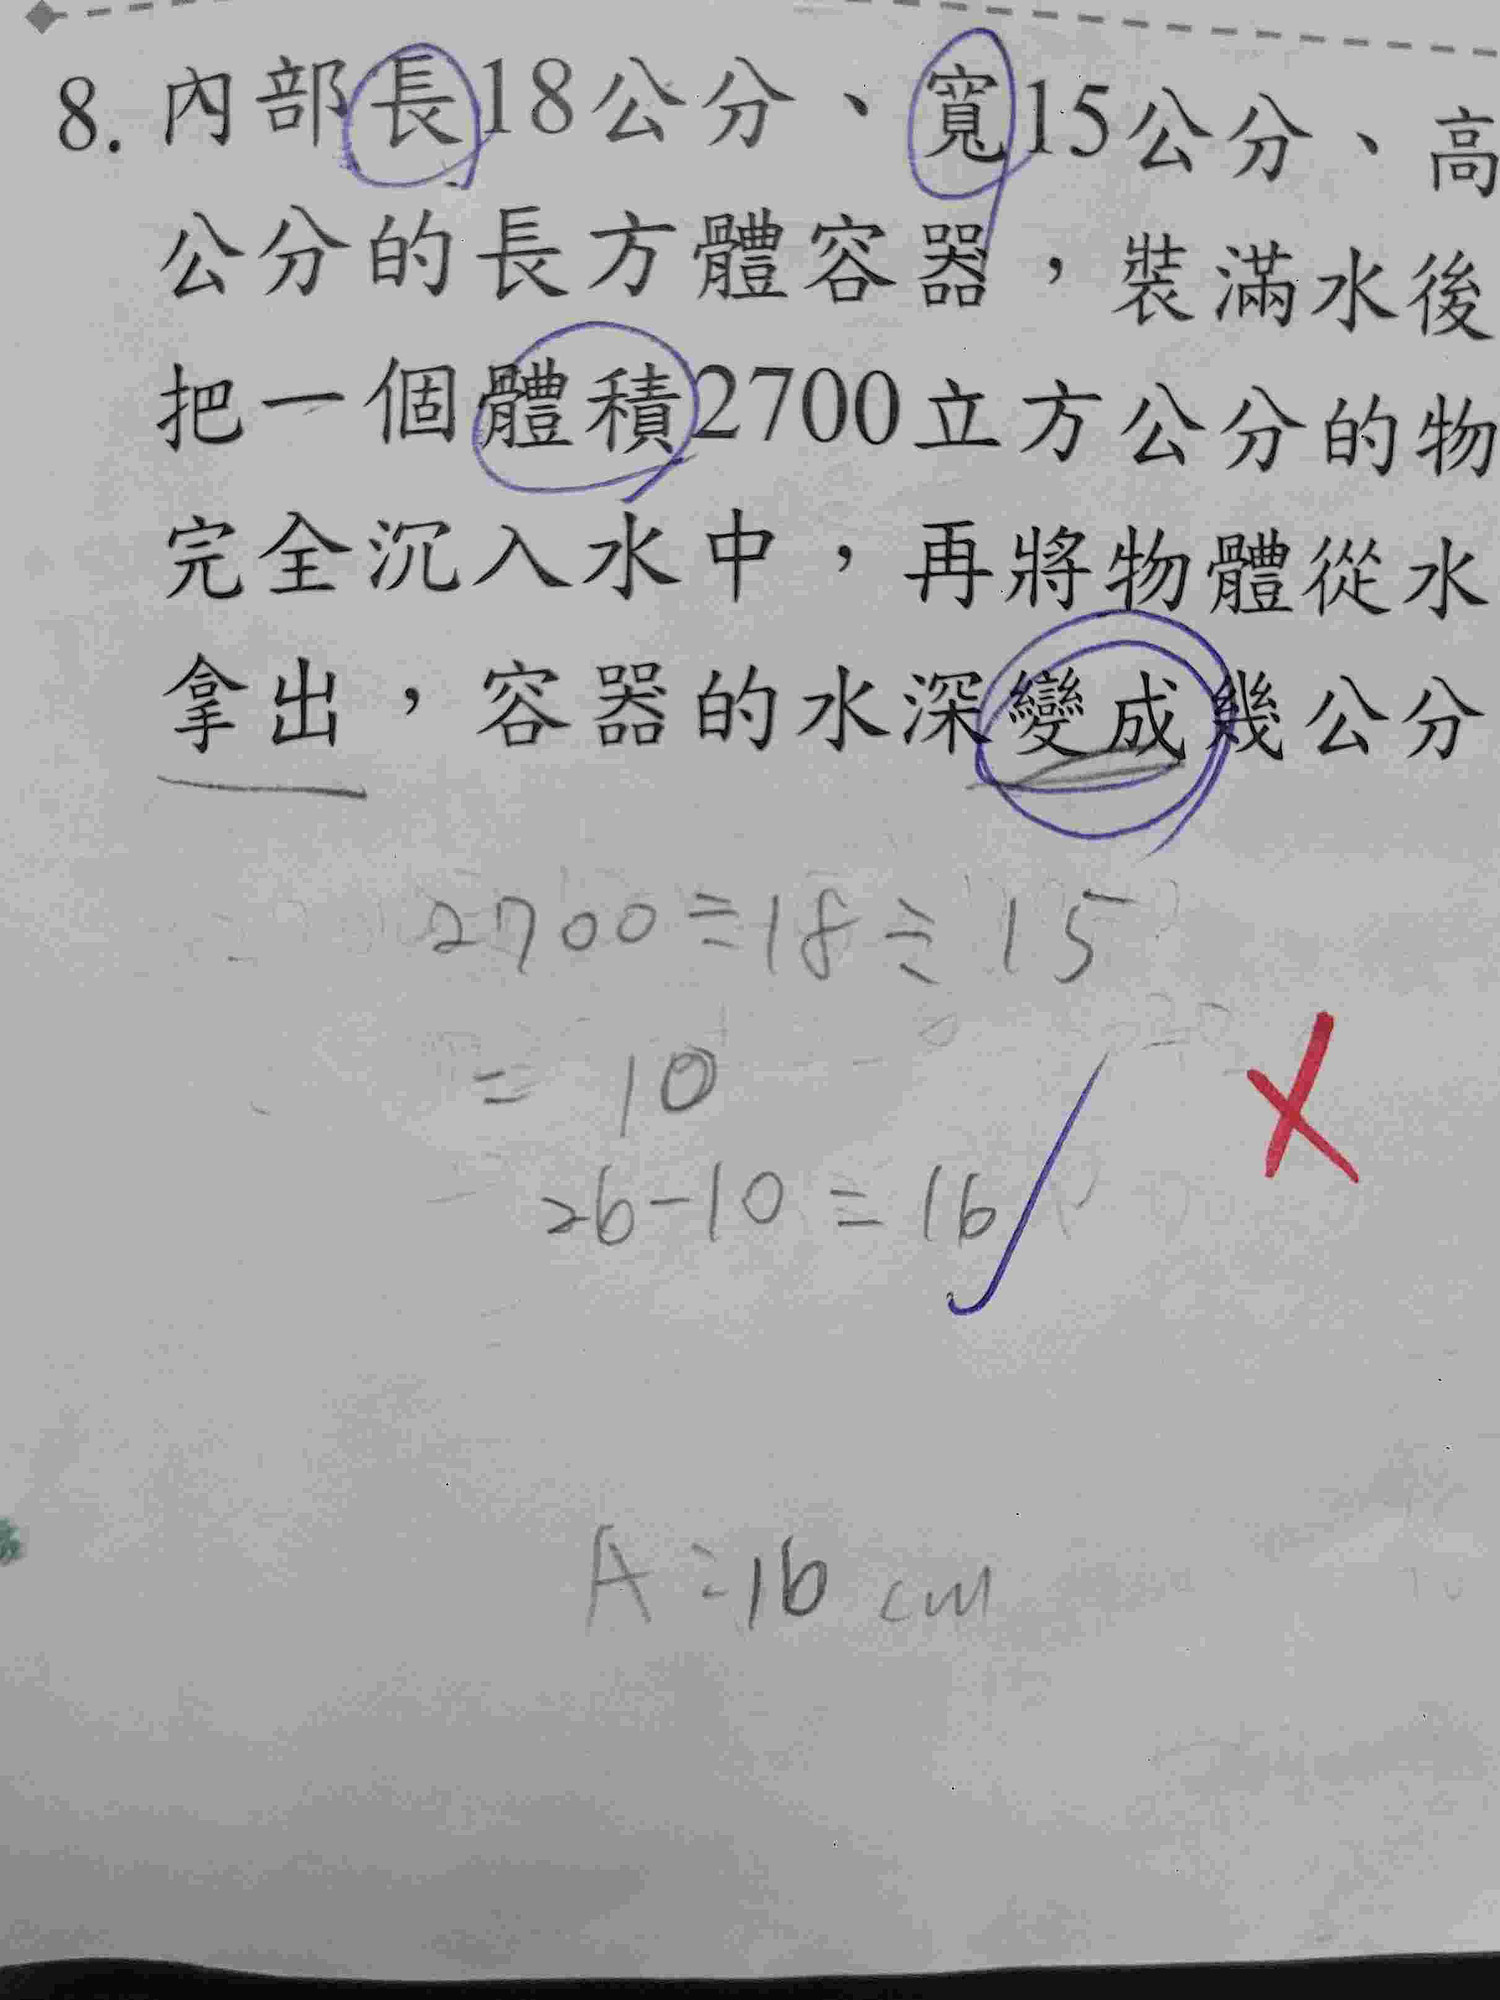 8. 內部長18公分、寬15公分、高
公分的長方體容器，裝滿水後
把一個體積2700立方公分的物
完全沉入水中，再將物體從水
拿出，容器的水深變成幾公分
2700÷18÷15
= 10
26-10=16
A:16 cm